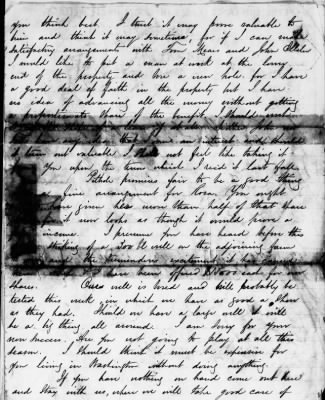 you think best. I trust it may prove valuable to
him and think it may sometime, for if I can make
satisfactory arrangements with Tom Mears and John
I would like to put a man at work at the lower
end of the property and bore a new hole for I have
a good deal of faith in the property but I have
no idea of advancing all the money without getting
a proportionate share of the benefit. I should
an interest and should
it turn out valuable I not feel like taking it
you upon the terms which I did it last fall.
Pithole promises fair to be a good thing
fine arrangement for You ought
have given her more than half of that share
for it now looks as though it would prove a
income. I presume you have heard before this
striking of a 200 Bl. well on the adjoining farm
and the tremendous excitement it has caused
have been offered for our
shares. Our well is bored and will probably be
tested this week in which we have as good a show
as they had. Should we have a large well it will
be a big thing all around. I am sorry for your
non success. Are you not going to play at all this
season. I should think it must be expensive for
you living in Washington without doing anything.
If you have nothing on hand come out here
and stay with us, where we will take good care of